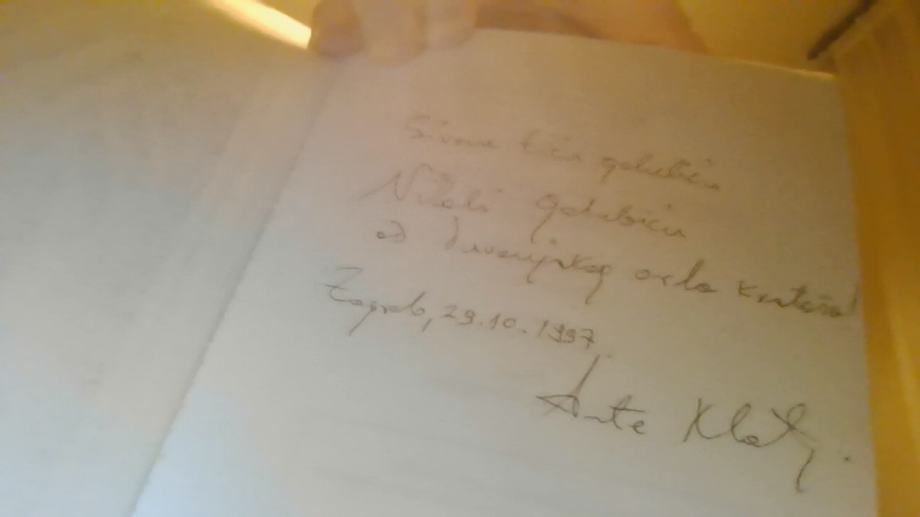 Sivome tiću golubiću
Nikoli Golubiću
od duvanjskog orla krstaša!
Zagreb, 29.10.1997.
Ante